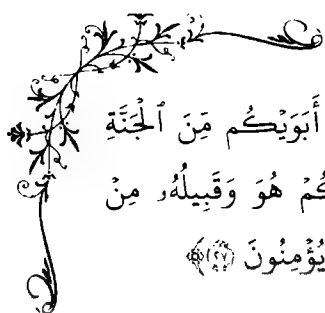 أَبَوَيْكُم مِّنَ ٱلْجَنَّةِ
كُمْ هُوَ وَقَبِيلُهُۥ مِنْ
يُؤْمِنُونَ ﴿٢٧﴾